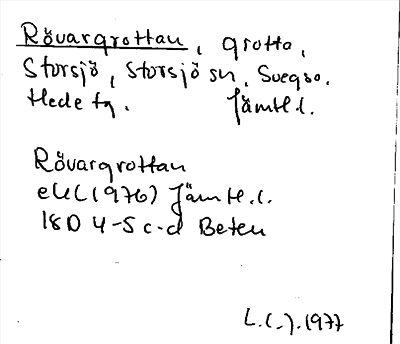 Rövargrottan, grotta,
Storsjö, Storsjö sn, Svegso.
Hede tg. Jämtl.l.
Rövargrottan
ekl (1976) Jämtl.l.
18D 4-5 c-d Beten
L.(-).1977